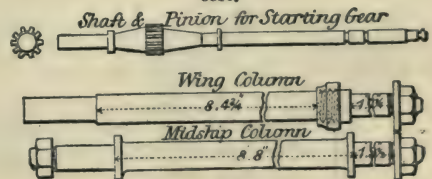 Shaft & Pinion for Starting Gear
Wing Column
8.4¾"
Midship Column
8'.8"